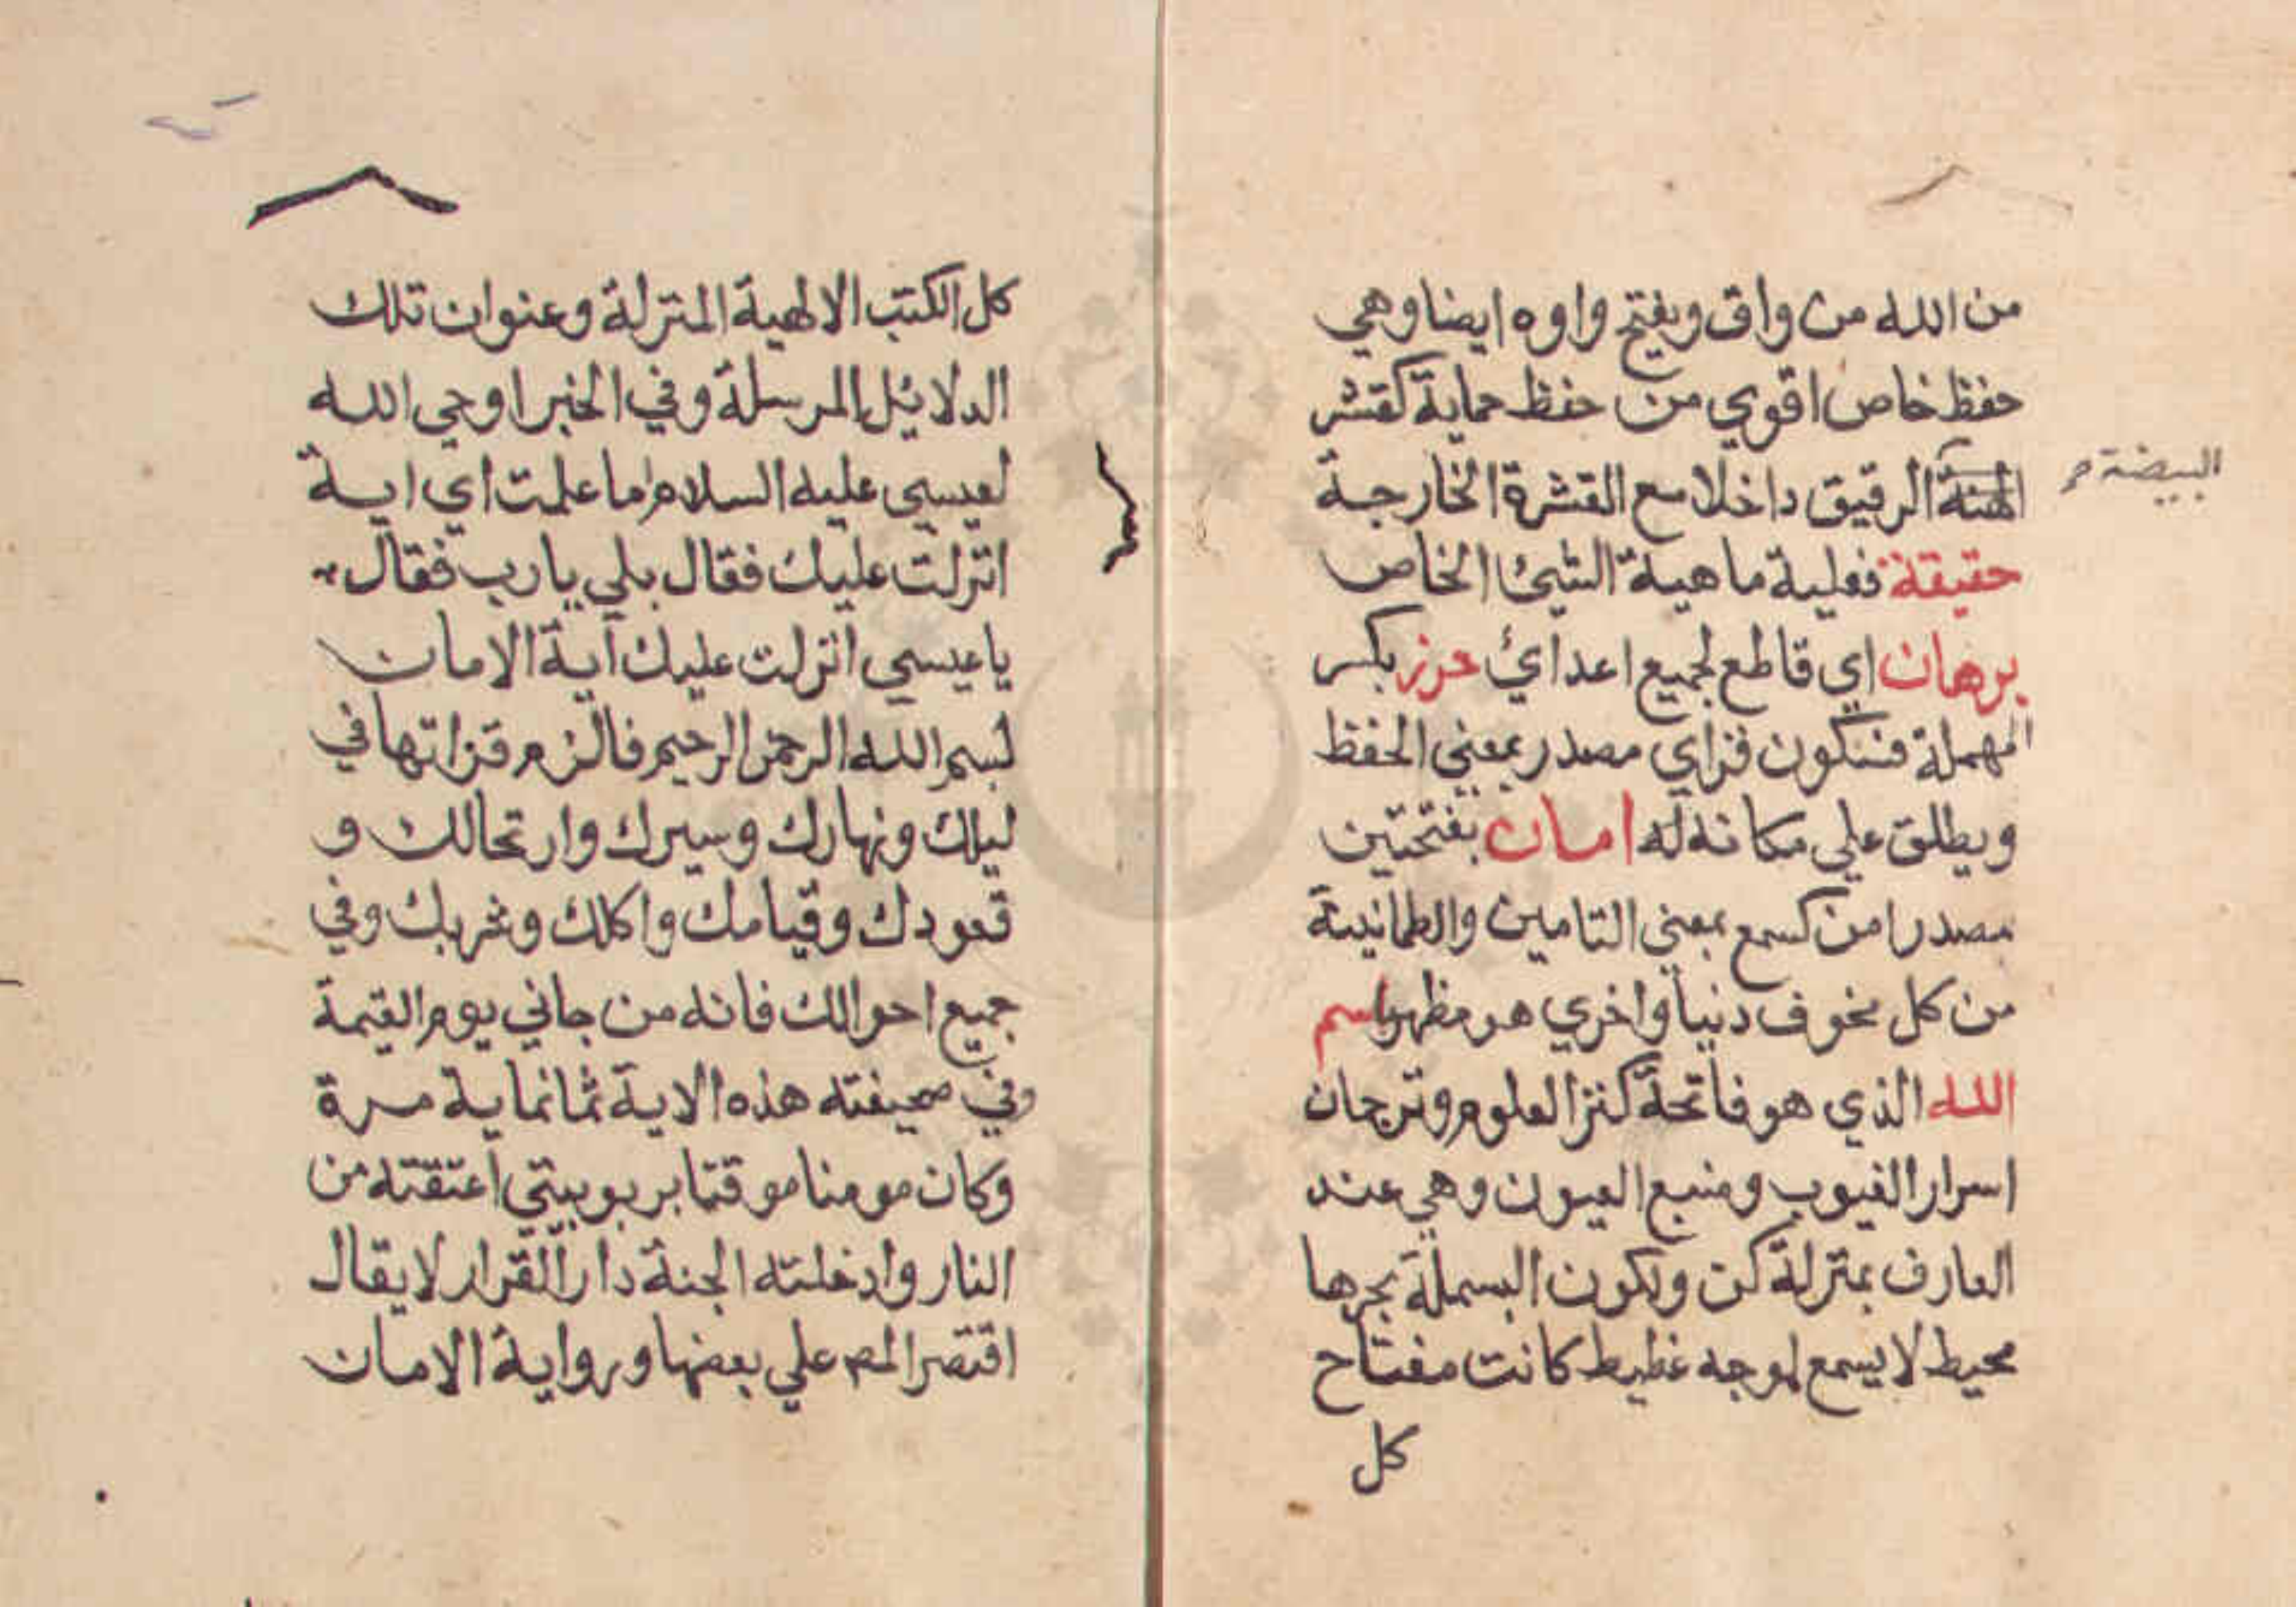 من الله من واق وبفتح واوه ايضا وهي
حفظ خاص اقوي من حفظ حماية كقشر
البيضة م
الرقيق داخلا مع القشرة الخارجة
حقيقة فعلية ماهية الشيئ الخاص
برهان اي قاطع لجميع اعدائ حرز بكسر
المهملة فسكون فزاي مصدر بمعني الحفظ
ويطلق علي مكانة له امان بفتحتين
مصدر امن كسمع بمعني التامين والطمانينة
من كل مخوف دنيا واخري هو مظهر اسم
الله الذي هو فاتحة كنز العلوم وترجمان
اسرار الغيوب ومنبع العيون وهي عند
العارف بمنزلة كن ولكون البسملة بحرها
محيط لا يسمع لموجه غطيط كانت مفتاح
كل
كل الكتب الالهية المنزلة وعنوان تلك
الدلائل المرسلة وفي الخبر اوحي الله
لعيسي عليه السلام اما علمت اي اية
انزلت عليك فقال بلي يا رب فقال
يا عيسي انزلت عليك آية الامان
بسم الله الرحمن الرحيم فالزم قراتها في
ليلك ونهارك وسيرك وارتحالك و
قعودك وقيامك واكلك وشربك وفي
جميع احوالك فانه من جاني يوم القيمة
وفي صحيفته هذه الاية ثمانماية مرة
وكان مومنا موقنا بربوبيتي اعتقته من
النار وادخلته الجنة دار القرار لا يقال
اقتصر المص علي بعضها ورواية الامان